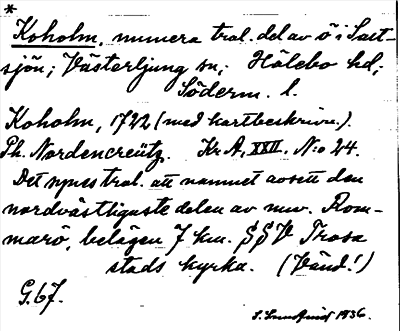 *
Koholm, numera tral. del av ö i Saxt-
sjön; Västerljung sn; Hölebo hd;
Söderm. l.
Koholm, 1722 (med kartbeskrivn.).
Ph. Nordencreütz. Kr. A, XXIII. N:o 24.
Det synes tral. att namnet avsett den
nordvästligaste delen av nuv. Rom-
marö, belägen 7 km. SSV Trosa
stads kyrka. (Vänd!)
G. 67.
1936.